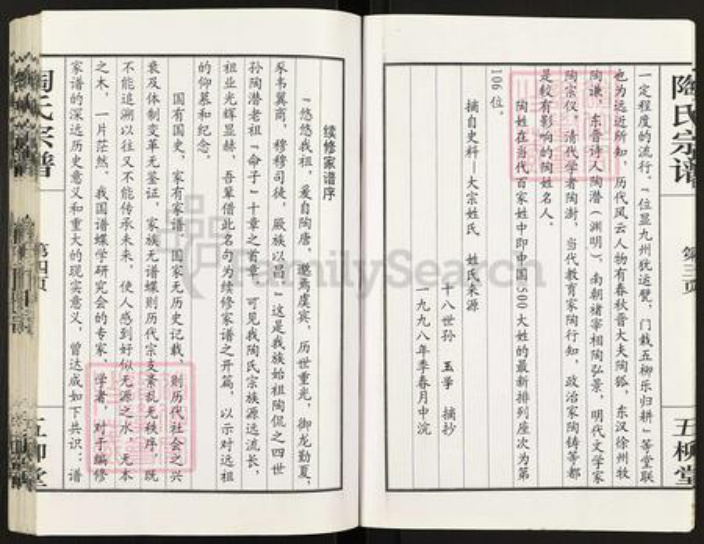 陶氏宗谱
第三页
五柳堂
一定程度的流行。“位显九州犹运甓，门栽五柳乐归耕”等堂联
也为远近所知，历代风云人物有春秋晋大夫陶狐，东汉徐州牧
陶谦，东晋诗人陶潜（渊明）、南朝褚宰相陶弘景，明代文学家
陶宗仪，清代学者陶澍，当代教育家陶行知，政治家陶铸等都
是较有影响的陶姓名人。
陶姓在当代百家姓中即中国500大姓的最新排列座次为第
106位。
摘自史料—大宗姓氏 姓氏来源
十八世孙 玉华 摘抄
一九九八年季春月中浣
续修家谱序
“悠悠我祖，爰自陶唐。邈焉虞宾，历世重光，御龙勤夏，
豕韦翼商，穆穆司徒，厥族以昌。”这是我族始祖陶侃之四世
孙陶潜老祖“命子”十章之首章，可见我陶氏宗族源远流长，
祖业光辉显赫，吾辈借此名句为续修家谱之开篇，以示对远祖
的仰慕和纪念。
国有国史，家有家谱，国家无历史记载，则历代社会之兴
衰及体制变革无鉴证，家族无谱牒则历代宗支紊乱无秩序，既
不能追溯以往又不能传承未来，使人感到好似无源之水，无本
之木，一片茫然。我国谱牒学研究会的专家，学者，对于编修
家谱的深远历史意义和重大的现实意义，曾达成如下共识：谱
陶氏宗谱
第四页
五柳堂
FamilySearch